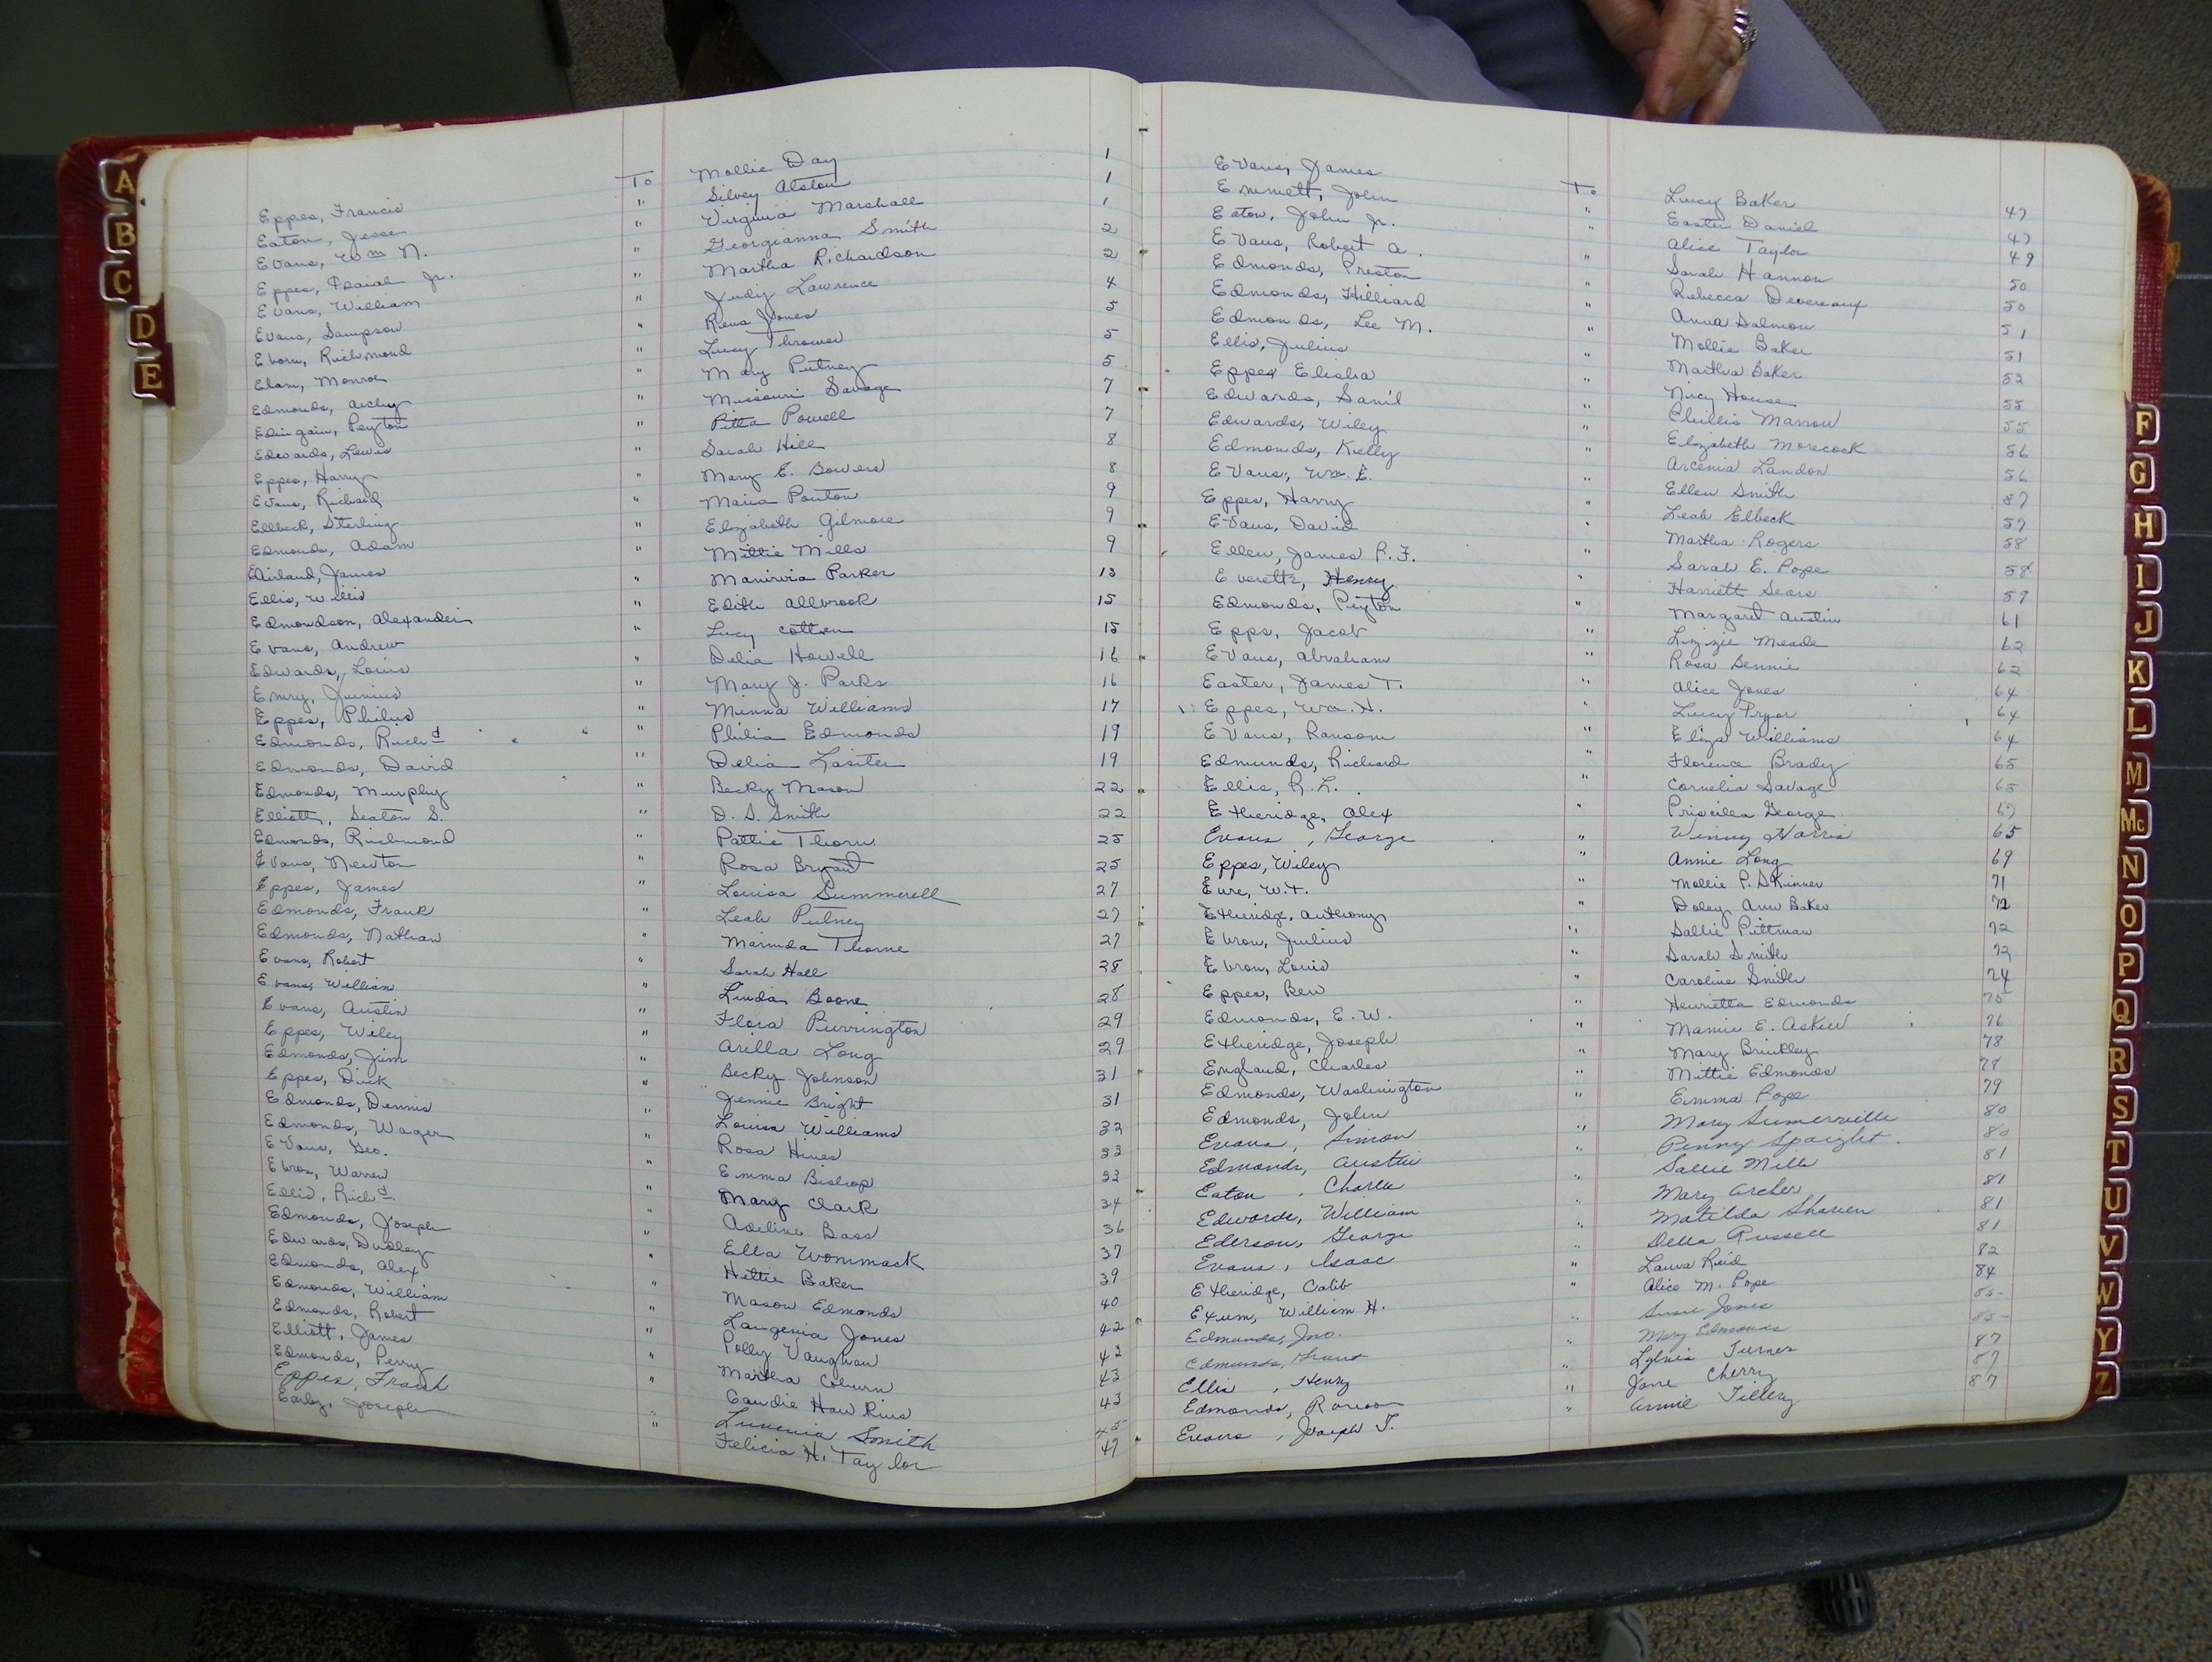 Eppes, Francis To Mollie Day 1
Eaton, Jesse " Silvey Alston 1
Evans, Wm N. " Virginia Marshall 1
Eppes, Isaiah Jr. " Georgianna Smith 2
Evans, William " Martha Richardson 2
Evans, Sampson " Judy Lawrence 4
Eborn, Richmond " Rena Jones 5
Elam, Monroe " Lucy Thrower 5
Edmonds, Archy " Mary Putney 5
Edingain, Peyton " Missouri Savage 7
Edwards, Lewis " Pitta Powell 7
Eppes, Harry " Sarah Hill 8
Evans, Richard " Mary E. Bowers 8
Ellbeck, Sterling " Maria Ponton 9
Edmonds, Adam " Elizabeth Gilmore 9
Eairland, James " Mittie Mills 9
Ellis, Willis " Manirvia Parker 13
Edmondson, Alexander " Edith Allbrook 15
Evans, Andrew " Lucy Cotten 15
Edwards, Louis " Delia Howell 16
Emry, Junius " Mary J. Parks 16
Eppes, Philus " Minna Williams 17
Edmonds, Richd " Philia Edmonds 19
Edmonds, David " Delia Lasiter 19
Edmonds, Murphy " Becky Mason 22
Elliott, Seaton S. " D. S. Smith 22
Edmonds, Richmond " Pattie Thorn 25
Evans, Newton " Rosa Bryant 25
Eppes, James " Louisa Summerell 27
Edmonds, Frank " Leah Putney 27
Edmonds, Nathan " Marinda Thorne 27
Evans, Robert " Sarah Hall 28
Evans, William " Linda Boone 28
Evans, Austin " Flora Purrington 29
Eppes, Wiley " Arilla Long 29
Edmonds, Jim " Becky Johnson 31
Eppes, Dick " Jennie Bright 31
Edmonds, Dennis " Louisa Williams 32
Edmonds, Wager " Rosa Hines 33
Evans, Geo. " Emma Bishop 33
Ebron, Warren " Mary Clark 34
Ellis, Richd " Adeline Bass 36
Edmonds, Joseph " Ella Wommack 37
Edwards, Dudley " Hettie Baker 39
Edmonds, Alex " Mason Edmonds 40
Edmonds, William " Laugenia Jones 42
Edmonds, Robert " Polly Vaughan 42
Elliott, James " Martha Coburn 43
Edmonds, Perry " Caudie Hawkins 43
Eppes, Frank " Luvenia Smith 45
Early, Joseph " Felicia H. Taylor 47
Evans, James To Lucy Baker 47
Emmett, John " Easter Daniel 47
Eaton, John Jr. " Alice Taylor 49
Evans, Robert A. " Sarah Hannon 50
Edmonds, Preston " Rebecca Devereaux 50
Edmonds, Hilliard " Anna Salmon 51
Edmonds, Lee M. " Mollie Baker 51
Ellis, Julius " Martha Baker 52
Eppes Elisha " Nicy House 55
Edwards, Sam'l " Phillis Marrow 55
Edwards, Wiley " Elizabeth Morecock 56
Edmonds, Kelly " Arcenia Landon 56
Evans, Wm. E. " Ellen Smith 57
Eppes, Harry " Leah Elbeck 57
Evans, David " Martha Rogers 58
Ellen, James R. F. " Sarah E. Pope 58
Everett, Henry " Harriett Sears 59
Edmonds, Peyton " Margaret Austin 61
Epps, Jacob " Lizzie Meade 62
Evans, Abraham " Rosa Bennie 62
Easter, James T. " Alice Jones 64
Eppes, Wm. H. " Lucy Pryor 64
Evans, Ransom " Eliza Williams 64
Edmunds, Richard " Florence Brady 65
Ellis, R. L. " Cornelia Savage 65
Etheridge, Alex " Priscilla George 67
Evans, George " Winny Harris 65
Eppes, Wiley " Annie Long 69
Eure, W.T. " Mollie P. Skinner 71
Etheridge, Anthony " Doley Ann Baker 72
Ebron, Julius " Sallie Pittman 72
Ebron, Louis " Sarah Smith 72
Eppes, Ben " Caroline Smith 74
Edmonds, E. W. " Henrietta Edmonds 75
Etheridge, Joseph " Mamie E. Askew 76
England, Charles " Mary Brinkley 78
Edmonds, Washington " Mittie Edmonds 78
Edmonds, John " Emma Pope 79
Evans, Simon " Mary Sumerville 80
Edmonds, Austin " Penny Spaight 80
Eaton, Charlie " Sallie Mills 81
Edwards, William " Mary Archer 81
Ederson, George " Matilda Shaven 81
Evans, Isaac " Della Russell 81
Etheridge, Calib " Laura Reid 82
Exum, William H. " Alice M. Pope 84
Edmunds, Jno. " Susie Jones 85
Edmunds, Grant " Mary Edmonds 85
Ellis, Henry " Sylvia Turner 87
Edmonds, Ranson " Jane Cherry 87
Evans, Joseph T. " Annie Tillery 87
A
B
C
D
E
F
G
H
I
J
K
L
M
Mc
N
O
P
Q
R
S
T
U
V
W
Y
Z